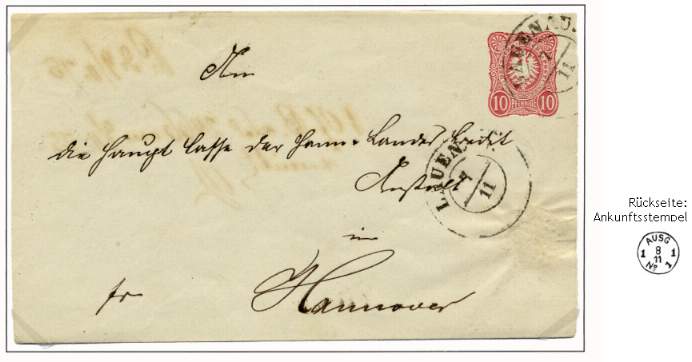 An
die Haupt Casse der Hann. Landes Credit
Anstalt
in
fr Hannover
LAUENAU.
7
11
10 PFENNIG 10
LAUENAU
7
11
Rückseite:
Ankunftsstempel
AUSG
8
1 1
11
No 1